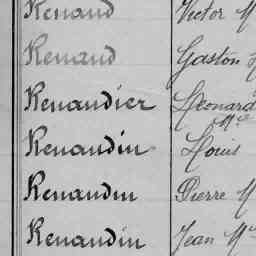 Renaud Victor M
Renaud Gaston
Renaudier Léonard
Mce
Renaudin Louis
Renaudin Pierre M
Renaudin Jean Mce